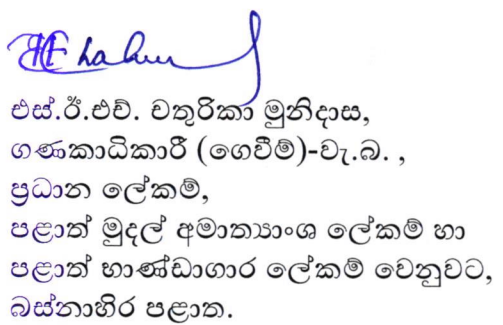 එස්.ඊ.එච්. චතුරිකා මුනිදාස,
ගණකාධිකාරී (ගෙවීම්)-වැ.බ. ,
ප්‍රධාන ලේකම්,
පළාත් මුදල් අමාත්‍යාංශ ලේකම් හා
පළාත් භාණ්ඩාගාර ලේකම් වෙනුවට,
බස්නාහිර පළාත.